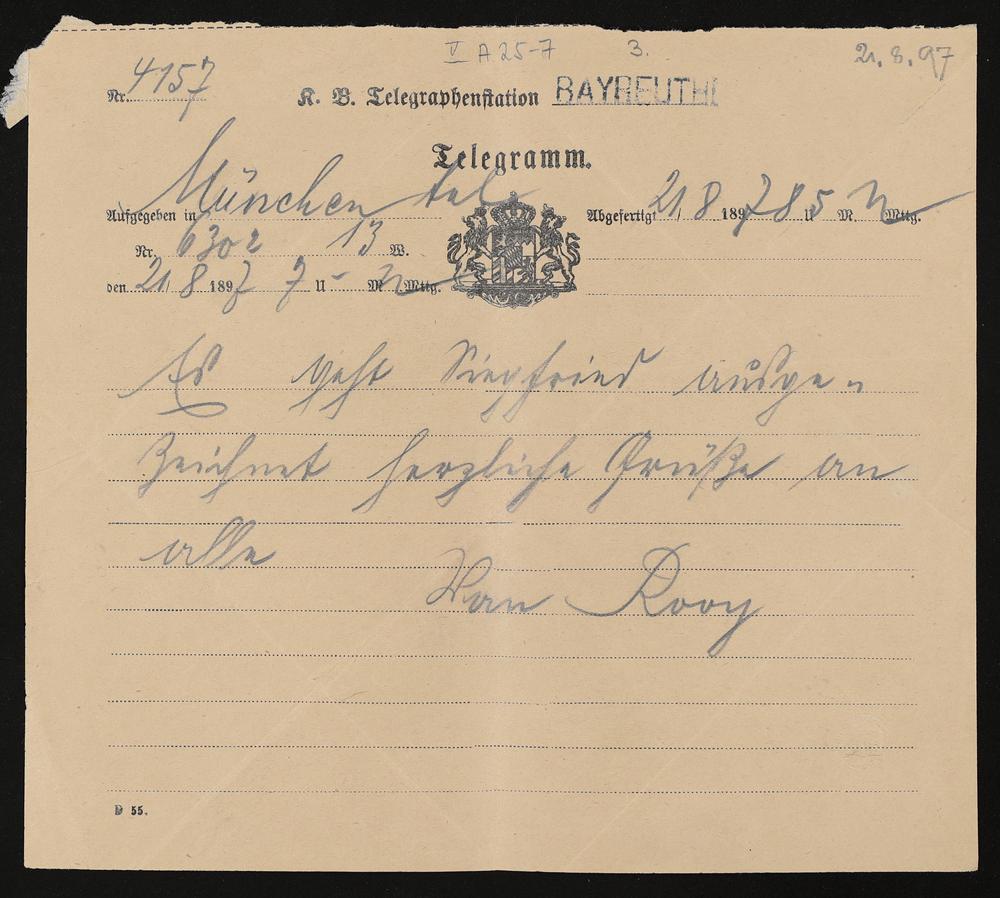 V A 25-7 3. 21.8.97
Nr. 4157
K. B. Telegraphenstation BAYREUTH
Telegramm.
Aufgegeben in München tel
Abgefertigt 21/8 1897 8 U 5 M. N Mttg.
Nr. 6302 13 W.
den 21/8 1897 7 U - M N Mttg.
Es geht Siegfried ausge-
zeichnet herzliche Grüße an
alle
Van Rooy
D 55.